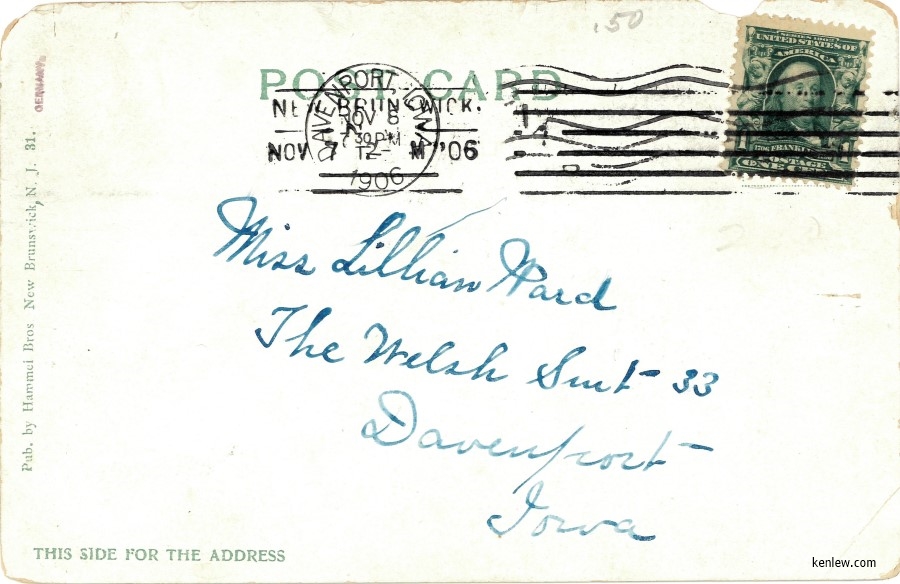 .50
POST CARD
NEW BRUNSWICK,
NOV 7 12- M '06
DAVENPORT, IOWA
NOV 8
7 30 PM
1906
SERIES 1902
UNITED STATES OF
AMERICA
FRANKLIN
POSTAGE
ONE CENT
GERMANY.
Pub. by Hammel Bros New Brunswick, N. J. 31.
Miss Lillian Ward
The Welsh Suit 33
Davenport
Iowa
THIS SIDE FOR THE ADDRESS
kenlew.com